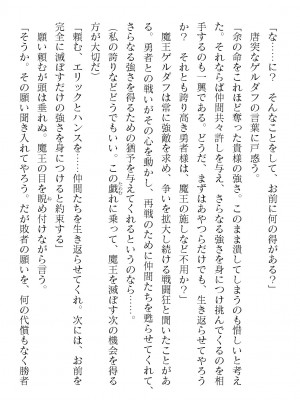 「な……に？　そんなことをして、お前に何の得がある？」
　唐突なゲルダフの言葉に戸惑う。
「余の命をこれほど奪った貴様の強さ。このまま潰してしまうのも惜しいと考え
た。それならば仲間共々許しを与え、さらなる強さを身につけ挑んでくるのを相
手するのも一興である。どうだ、まずはあやつらだけでも、生き返らせてやろう
と思うが。それとも誇り高き勇者様は、魔王の施しなど不用か？」
　魔王ゲルダフは常に強敵を求め、争いを拡大し続ける戦闘狂と聞いたことがあ
る。勇者との戦いがその心を動かし、再戦のために仲間たちを甦らせてくれて、
さらなる強さを得るための猶予を与えてくれるというのなら……。
（私の誇りなどどうでもいい。この戯れに乗って、魔王を滅ぼす次の機会を得る
方が大切だ）
「頼む、エリックとハンスを……仲間たちを生き返らせてくれ。次には、お前を
完全に滅ぼすだけの強さを身につけると約束する」
　願い頼むが頭は垂れぬ。魔王の目を睨め付けながら言う。
「そうか。その願い聞き入れてやろう。だが敗者の願いを、何の代償もなく勝者